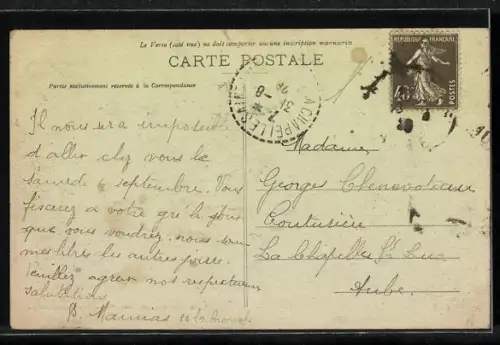 Le Verso (coté vue) ne doit comporter aucune inscription manuscrite
CARTE POSTALE
Partie exclusivement réservée à la Correspondance
REPUBLIQUE FRANÇAISE
POSTES
LA CHAPELLE
Il nous sera impossible
d'aller chez vous le
samedi septembre. Vous
fixerez à votre gré le jour
que vous voudrez, nous sommes
libres les autres jours.
Veuillez agréer nos respectueuses
salutations
B.
Madame
Georges
Couturière
La Chapelle St Luc
Aube.